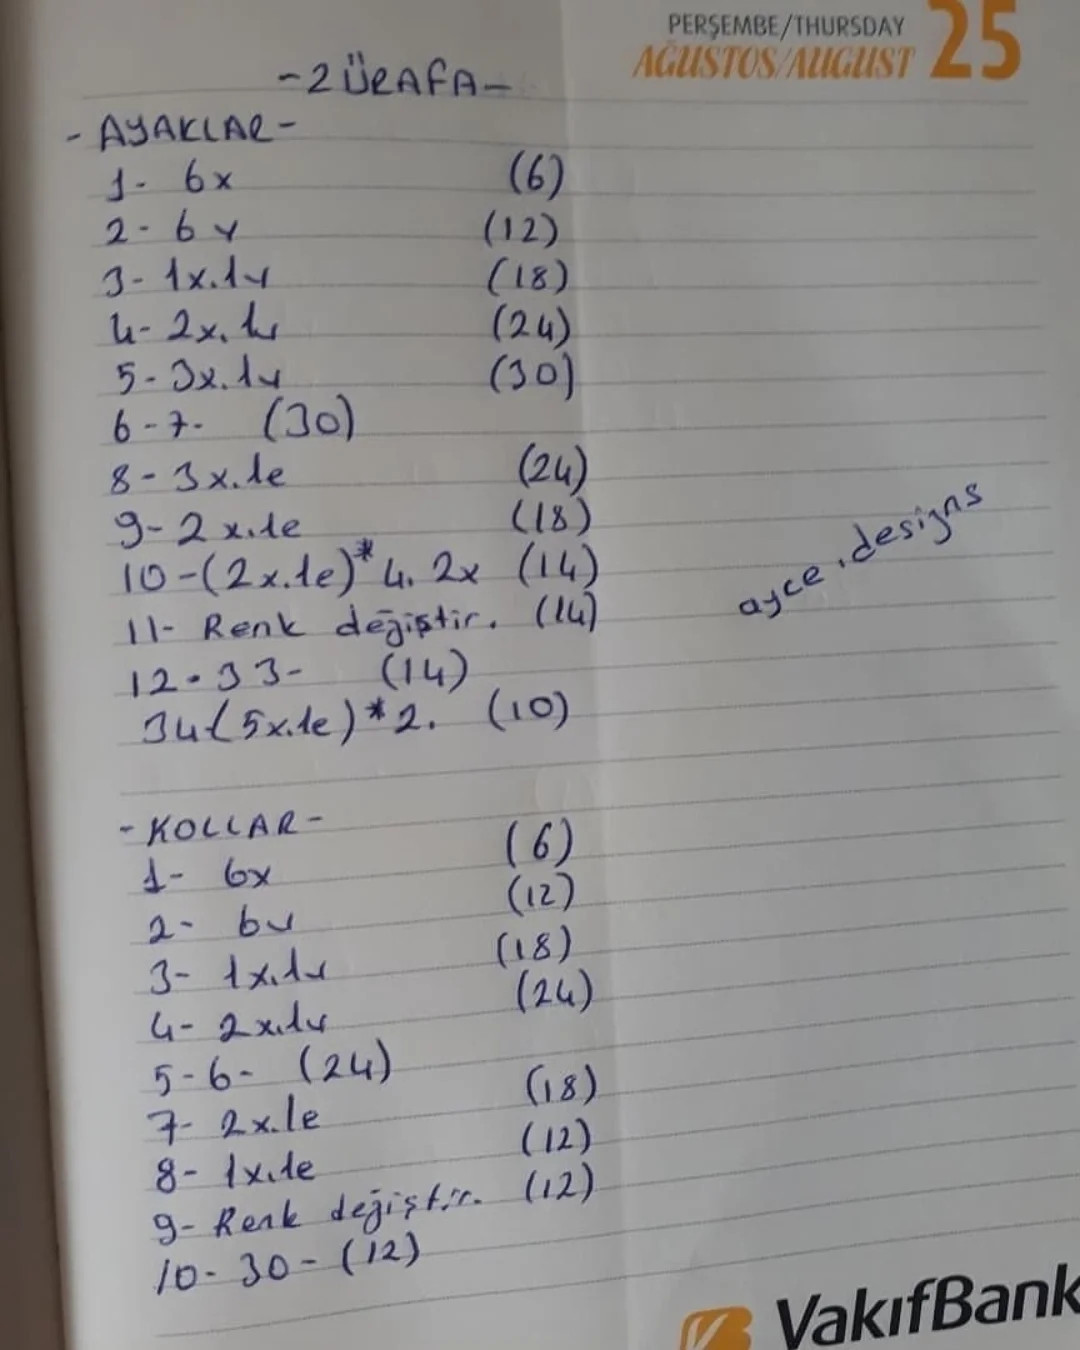 PERŞEMBE/THURSDAY
AĞUSTOS/AUGUST 25
-2ÜRAFA-
- AYAKLAR -
1- 6x (6)
2- 6v (12)
3- 1x.1v (18)
4- 2x.1v (24)
5- 3x.1v (30)
6-7- (30)
8- 3x.1e (24)
9- 2x.1e (18)
10-(2x.1e)*4. 2x (14)
11- Renk değiştir. (14)
12-33- (14)
34-(5x.1e)*2. (10)
ayce.designs
- KOLLAR -
1- 6x (6)
2- 6v (12)
3- 1x.1v (18)
4- 2x.1v (24)
5-6- (24)
7- 2x.1e (18)
8- 1x.1e (12)
9- Renk değiştir. (12)
10-30- (12)
VakıfBank